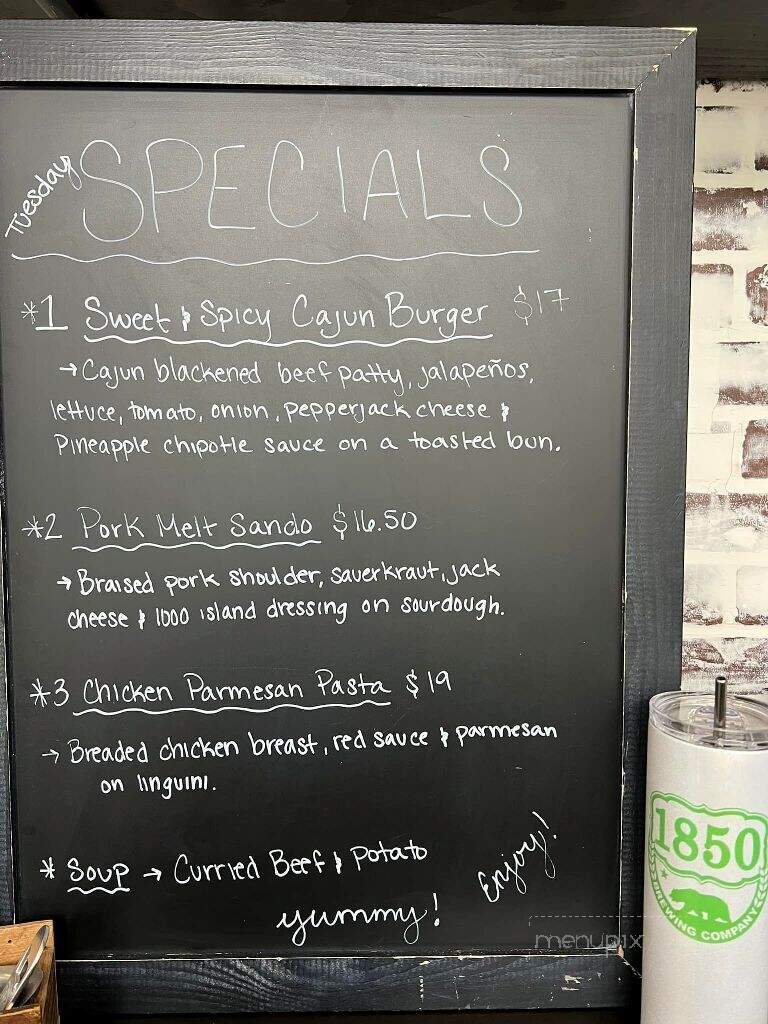 Tuesday SPECIALS
*1 Sweet & Spicy Cajun Burger $17
→ Cajun blackened beef patty, jalapeños,
lettuce, tomato, onion, pepperjack cheese &
Pineapple chipotle sauce on a toasted bun.
*2 Pork Melt Sando $16.50
→ Braised pork shoulder, sauerkraut, jack
cheese & 1000 island dressing on sourdough.
*3 Chicken Parmesan Pasta $19
→ Breaded chicken breast, red sauce & parmesan
on linguini.
* Soup → Curried Beef & Potato
yummy! Enjoy!
1850
BREWING COMPANY
menupix